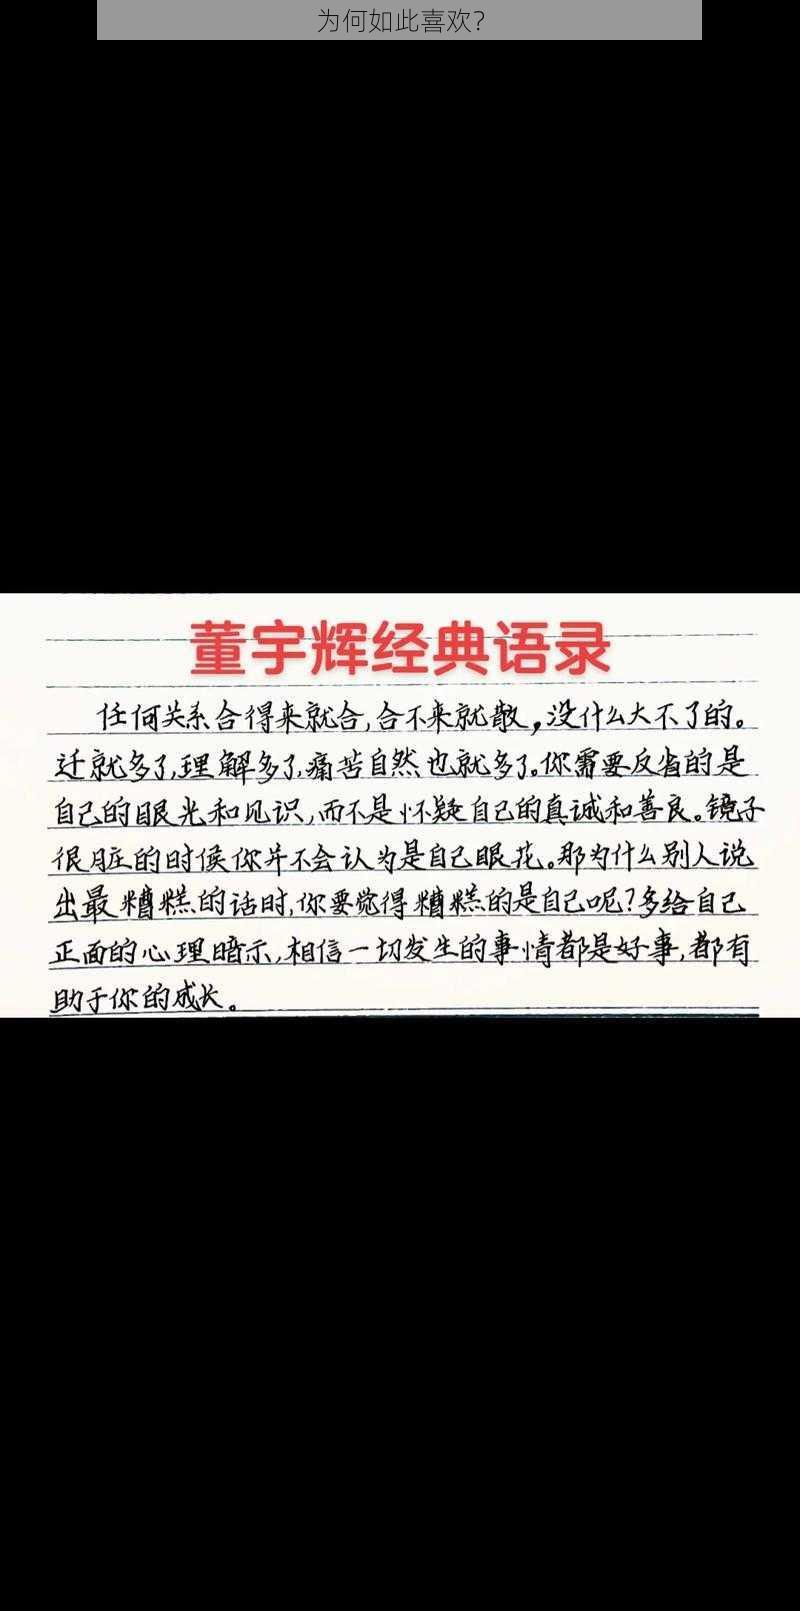 为何如此喜欢？
董宇辉经典语录
任何关系合得来就合,合不来就散,没什么大不了的。
迁就多了,理解多了,痛苦自然也就多了。你需要反省的是
自己的眼光和见识,而不是怀疑自己的真诚和善良。镜子
很脏的时候你并不会认为是自己眼花。那为什么别人说
出最糟糕的话时,你要觉得糟糕的是自己呢?多给自己
正面的心理暗示,相信一切发生的事情都是好事,都有
助于你的成长。